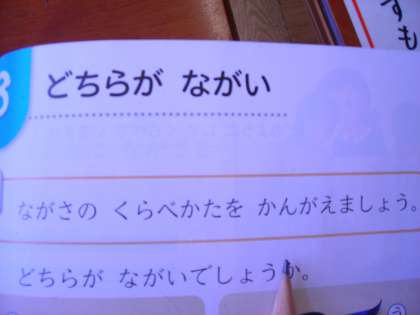 すも
8
どちらが ながい
ながさの くらべかたを かんがえましょう。
どちらが ながいでしょうか。
う